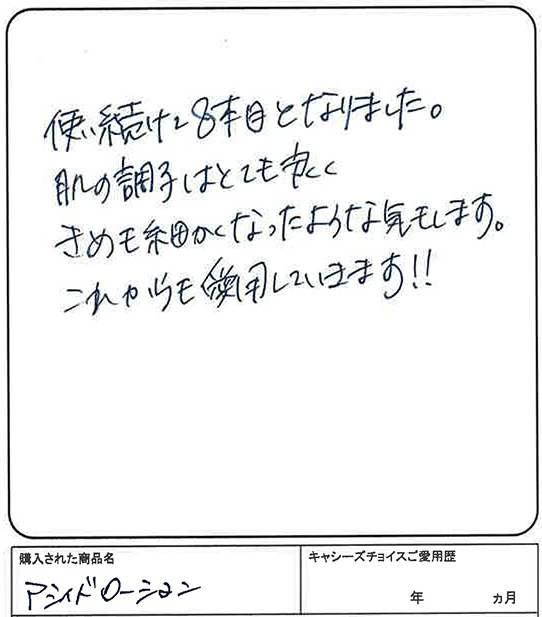 使い続けて8本目となりました。
肌の調子はとても良く
きめも細かくなったような気もします。
これからも愛用していきます!!
購入された商品名
アシィドローション
キャシーズチョイスご愛用歴
年 ヵ月